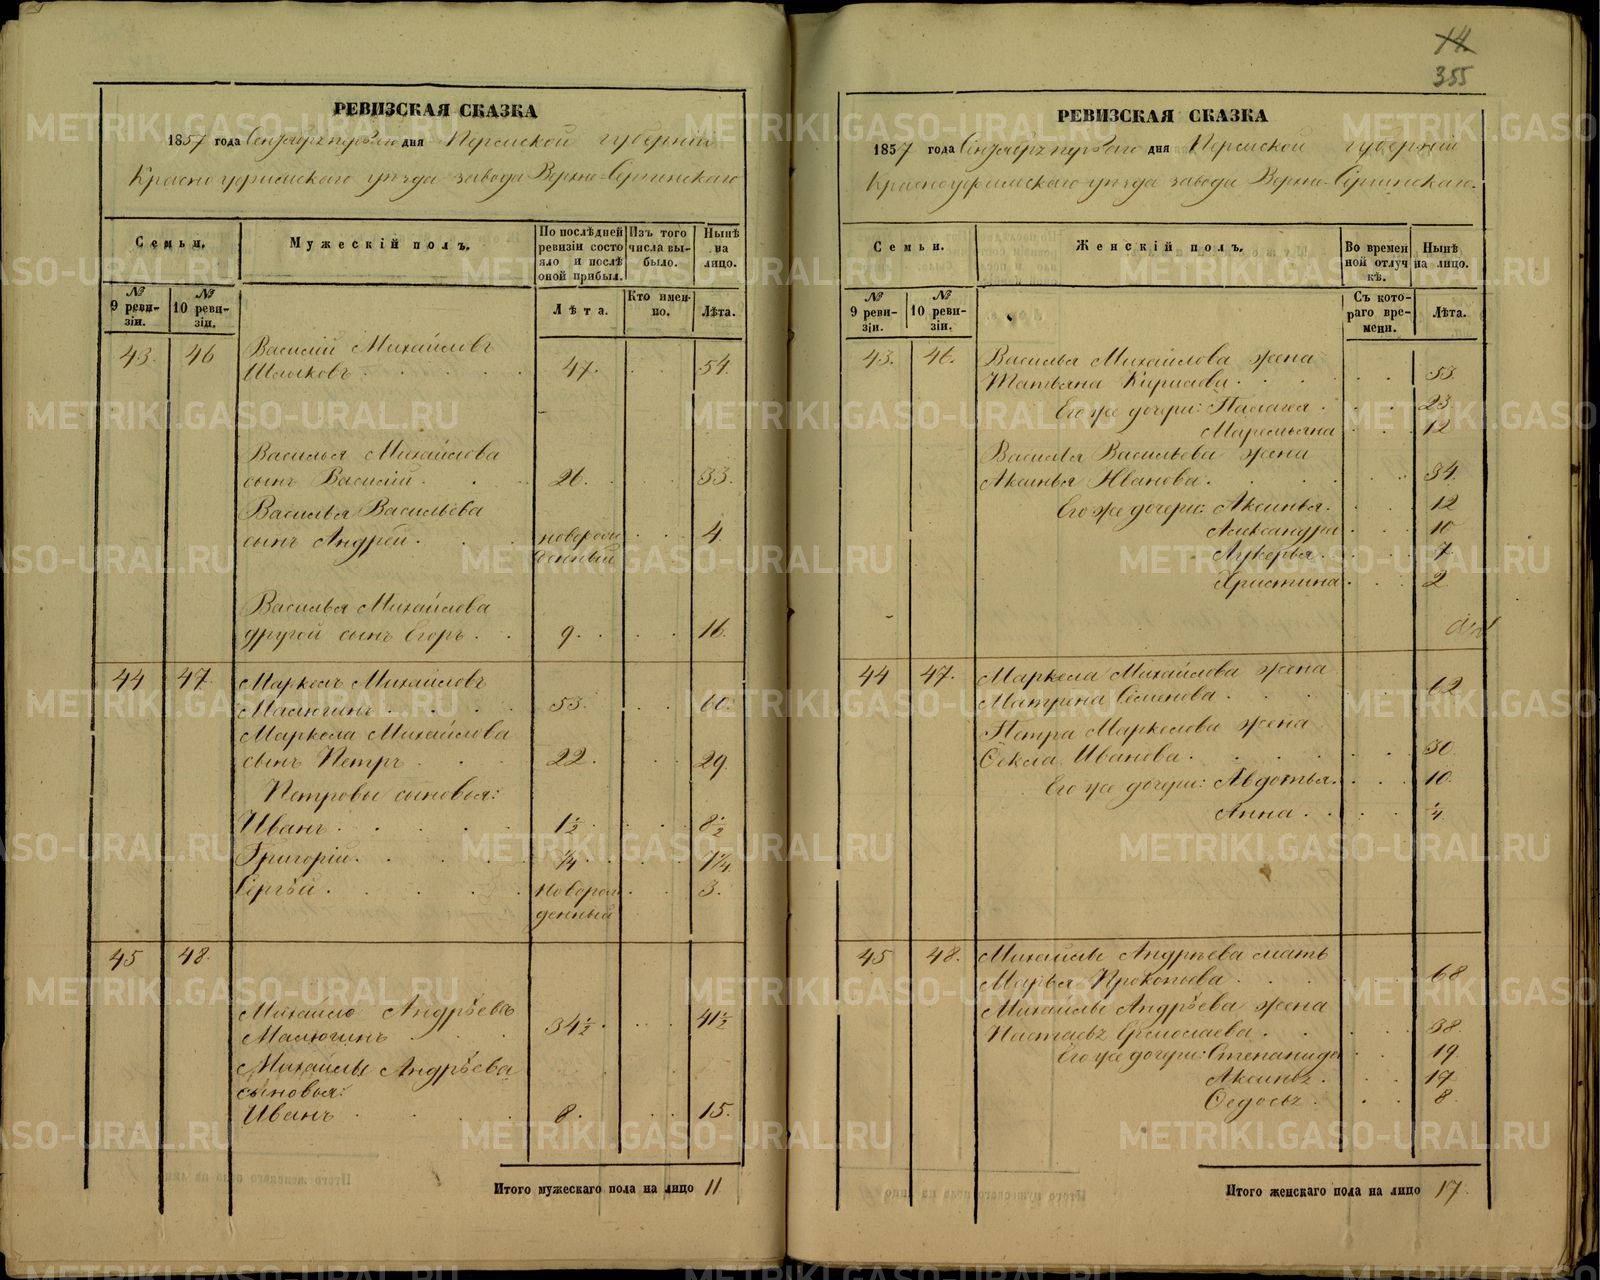 14.
355
РЕВИЗСКАЯ СКАЗКА
1857 года Сентября перваго дня Пермской губерніи
Красноуфимскаго уѣзда завода Верхне-Сергинскаго
Семьи.
Мужескій полъ.
По послѣдней ревизіи состояло и послѣ оной прибыл.
Изъ того числа выбыло.
Нынѣ на лицо.
№ 9 ревизіи.
№ 10 ревизіи.
Лѣта.
Кто именно.
Лѣта.
43. 46 Василій Михайловъ
47. 54.
Василья Михайлова
сынъ Василій. 26. 33.
Василья Васильева
сынъ Андрей. новорожденный 4
Василья Михайлова
другой сынъ Егоръ. 9. 16.
44 47. Маркелъ Михайловъ
Малюгинъ. 53. 60.
Маркела Михайлова
сынъ Петръ. 22. 29.
Петровы сыновья:
Иванъ. 1½ 8½
Григорій. ¼ 7¼
Сергѣй. новорожденный 3.
45 48.
Михайло Андрѣевъ
Малюгинъ 34½ 41½
Михайлы Андрѣева
сыновья:
Иванъ 8. 15.
Итого мужескаго пола на лицо 11
РЕВИЗСКАЯ СКАЗКА
1857 года Сентября перваго дня Пермской губерніи
Красноуфимскаго уѣзда завода Верхне-Сергинскаго.
Семьи.
Женскій полъ.
Во временной отлучкѣ.
Нынѣ на лицо.
№ 9 ревизіи.
№ 10 ревизіи.
Съ котораго времени.
Лѣта.
43. 46. Василья Михайлова жена
Татьяна Кирилова. 53.
Его же дочери: Палагея. 23
Маремьяна 12
Василья Васильева жена
Аксинья Иванова. 34.
Его же дочери: Аксинья. 12
Александра 10
Лукерья. 7
Христина. 2
44 47. Маркела Михайлова жена
Матрена Семенова. 62
Петра Маркелова жена
Ѳекла Иванова. 30.
Его же дочери: Авдотья. 10.
Анна. ¼
45 48. Михайлы Андрѣева мать
Марья Прокопова. 68
Михайлы Андрѣева жена
Ермолаева. 38.
Его же дочери: Степанида 19.
Аксинья. 17
Ѳедосья. 8.
Итого женскаго пола на лицо 17.
METRIKI.GASO-URAL.RU